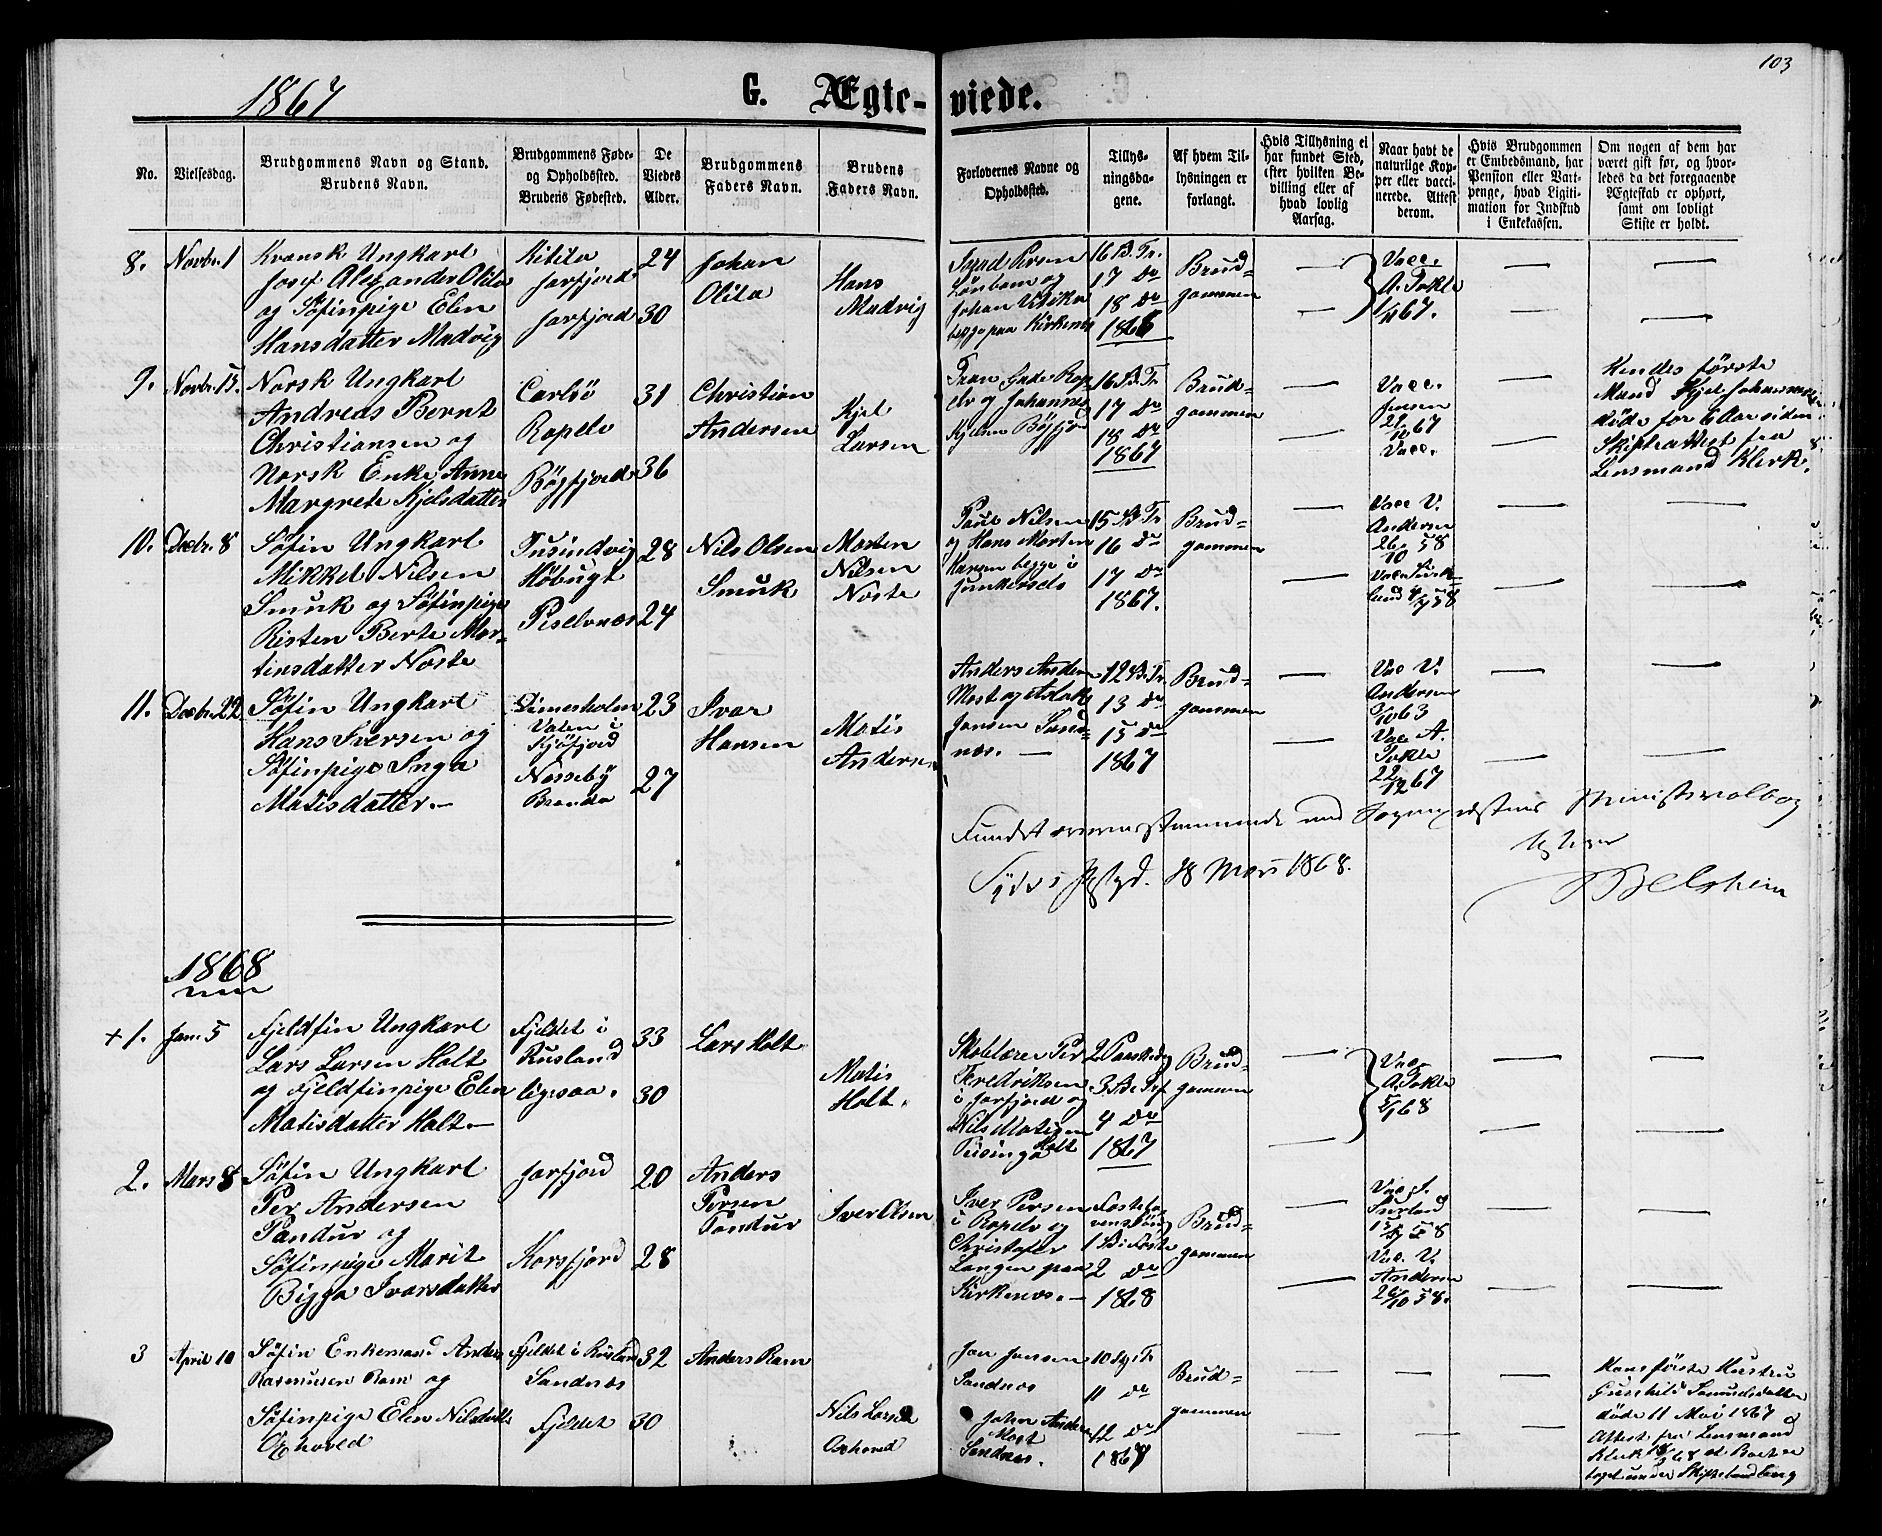 103
1867
G. Ægte-viede.
No.
Vielsesdag.
Brudgommens Navn og Stand.
Brudens Navn.
Brudgommens Føde-
og Opholdssted.
Brudens Fødested.
De
Viedes
Alder.
Brudgommens
Faders Navn.
Brudens
Faders Navn.
Forlovernes Navne og
Opholdssted.
Tillys-
ningsda-
gene.
Af hvem Til-
lysningen er
forlangt.
Hvis Tillysning ei
har fundet Sted,
efter hvilken Be-
villing eller af
hvad lovlig
Aarsag.
Naar havt de
naturlige Kop-
per eller vacci-
nerede. Attest
derom.
Hvis Brudgommen
er Embedsmand, har
Pension eller Vart-
penge, hvad Ligiti-
mation for Indskud
i Enkekassen.
Om nogen af dem har
været gift før, og hvor-
ledes da det foregaaende
Ægteskab er ophørt,
samt om lovligt
Skifte er holdt.
8. Novbr. 1
Kvænsk Ungkarl
Josef Alexander Olila
og Søfinpige Elen
Hansdatter Madvig
Kitila
Jarfjord
Jarfjord
24
30
Johan
Olila
Hans
Madvig
Persen
og
Johan
begge paa Kirkenes
16 S. Tr.
17 Do
18 Do
1868
Brud-
gommen
Vacc.
A. Tokle
1/11 67.
9. Novbr. 15.
Norsk Ungkarl
Andreas Bernt
Christiansen og
Norsk Enke Anne
Margrete Kjelsdatter
Carlsø
Ropelv
Bøgfjord
31
36
Christian
Andersen
Kjel
Larsen
Ropelv og Johannes
Kjelsen Bøgfjord
16 S. Tr.
17 Do
18 Do
1867
Brud-
gommen
Vacc.
Jensen
21/10 67
Vacc.
Hendes første
Mand Kjel Johannesen
døde for 6 Aar siden
Skifteattest fra
Lensmand Klerk.
10. Decbr. 8
Søfin Ungkarl
Mikkel Nilsen
Smuk og Søfinpige
Risten Berte Mor-
tinsdatter Noste
Tusindvig
Høbugt
Piselvnæs
28
24
Nils Olsen
Smuk
Morten
Nilsen
Noste
Poul Nilsen
og Hans Morten
Larsen begge i
Junkerselv
15 S. Tr.
16 Do
17 Do
1867.
Brud-
gommen
Vacc V.
Andersen
26/10 58
11. Decbr. 22
Søfin Ungkarl
Hans Iversen og
Søfinpige Inga
Matisdatter.
Simesholm
Vaten i
Kjøfjord
Nesseby
23
27
Ivar
Hansen
Matis
Andersen
Anders Andersen
Most og Aslak
Jansen Sand-
næs.
12 S. Tr.
13 Do
15 Do
1867
Brud-
gommen
Vac V.
Andersen
63
Vac A.
Tokle
22/12 67
Fundet overensstemmende med Sognepræstens Ministerialbog
Sydv. Prgjd. 28 Mars 1868.
1868
+ 1. Jan. 5
Fjeldfin Ungkarl
Lars Larsen Holt
og Fjeldfinpige Elen
Matisdatter Holt.
Fjeldet i
Rusland
ligesaa.
33
30
Lars Holt
Matis
Holt.
Skolelærer Per
Fredriksen
i Jarfjord og
Nils Matisen
Holt
3 S.
4 Do
1867
Brud-
gommen
Vac
A. Tokle
5/1 68
2. Mars 8
Søfin Ungkarl
Per Andersen
Pandur og
Søfinpige Marit
Bigga Ivarsdatter
Jarfjord
Korsfjord
20
28
Anders
Persen
Pandur
Iver Olsen
Iver Persen
i Ropelv og
Christofer
Langen paa
Kirkenes.
Fastela-
vensøndag
1 S. i Faste
2 Do
1868
Brud-
gommen
58
Vac. V.
Andersen
26/10 58.
3 April 10
Søfin Enkemand Anders
Rasmusen Ram og
Søfinpige Elen Nilsdatter
Oxhoved
Fjeldet i Rusland
Sandnæs
Fjeldet
32
30
Anders Ram
Nils Larsen
Oxhoved
Jon Jonsen
Sandnæs
John Andersen
Most
Sandnæs.
10 S. Tr
11 Do
12 Do
1867
Brud-
gommen
Hans første Hustru
Gunhild Samuelsdatter
døde 11 Mai 1867
Attest fra Lensmand
Klerk 68 at Boet er
taget under Skiftebehandling